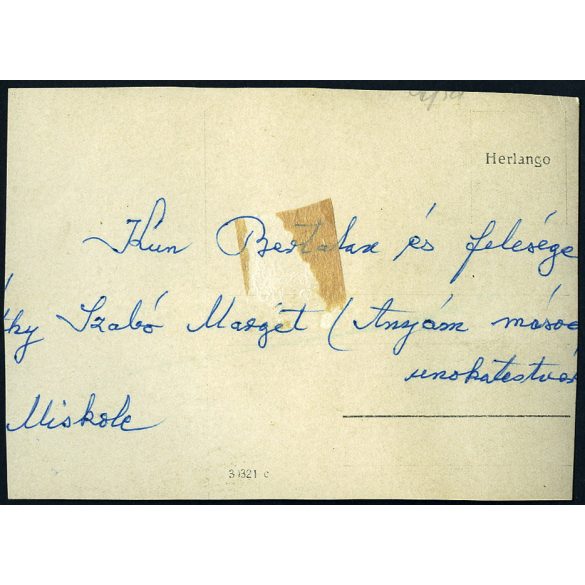 Herlango
Kun Bertalan és felesége
thy Szabó Margét (Anyám másod
unokatestvé
Miskolc